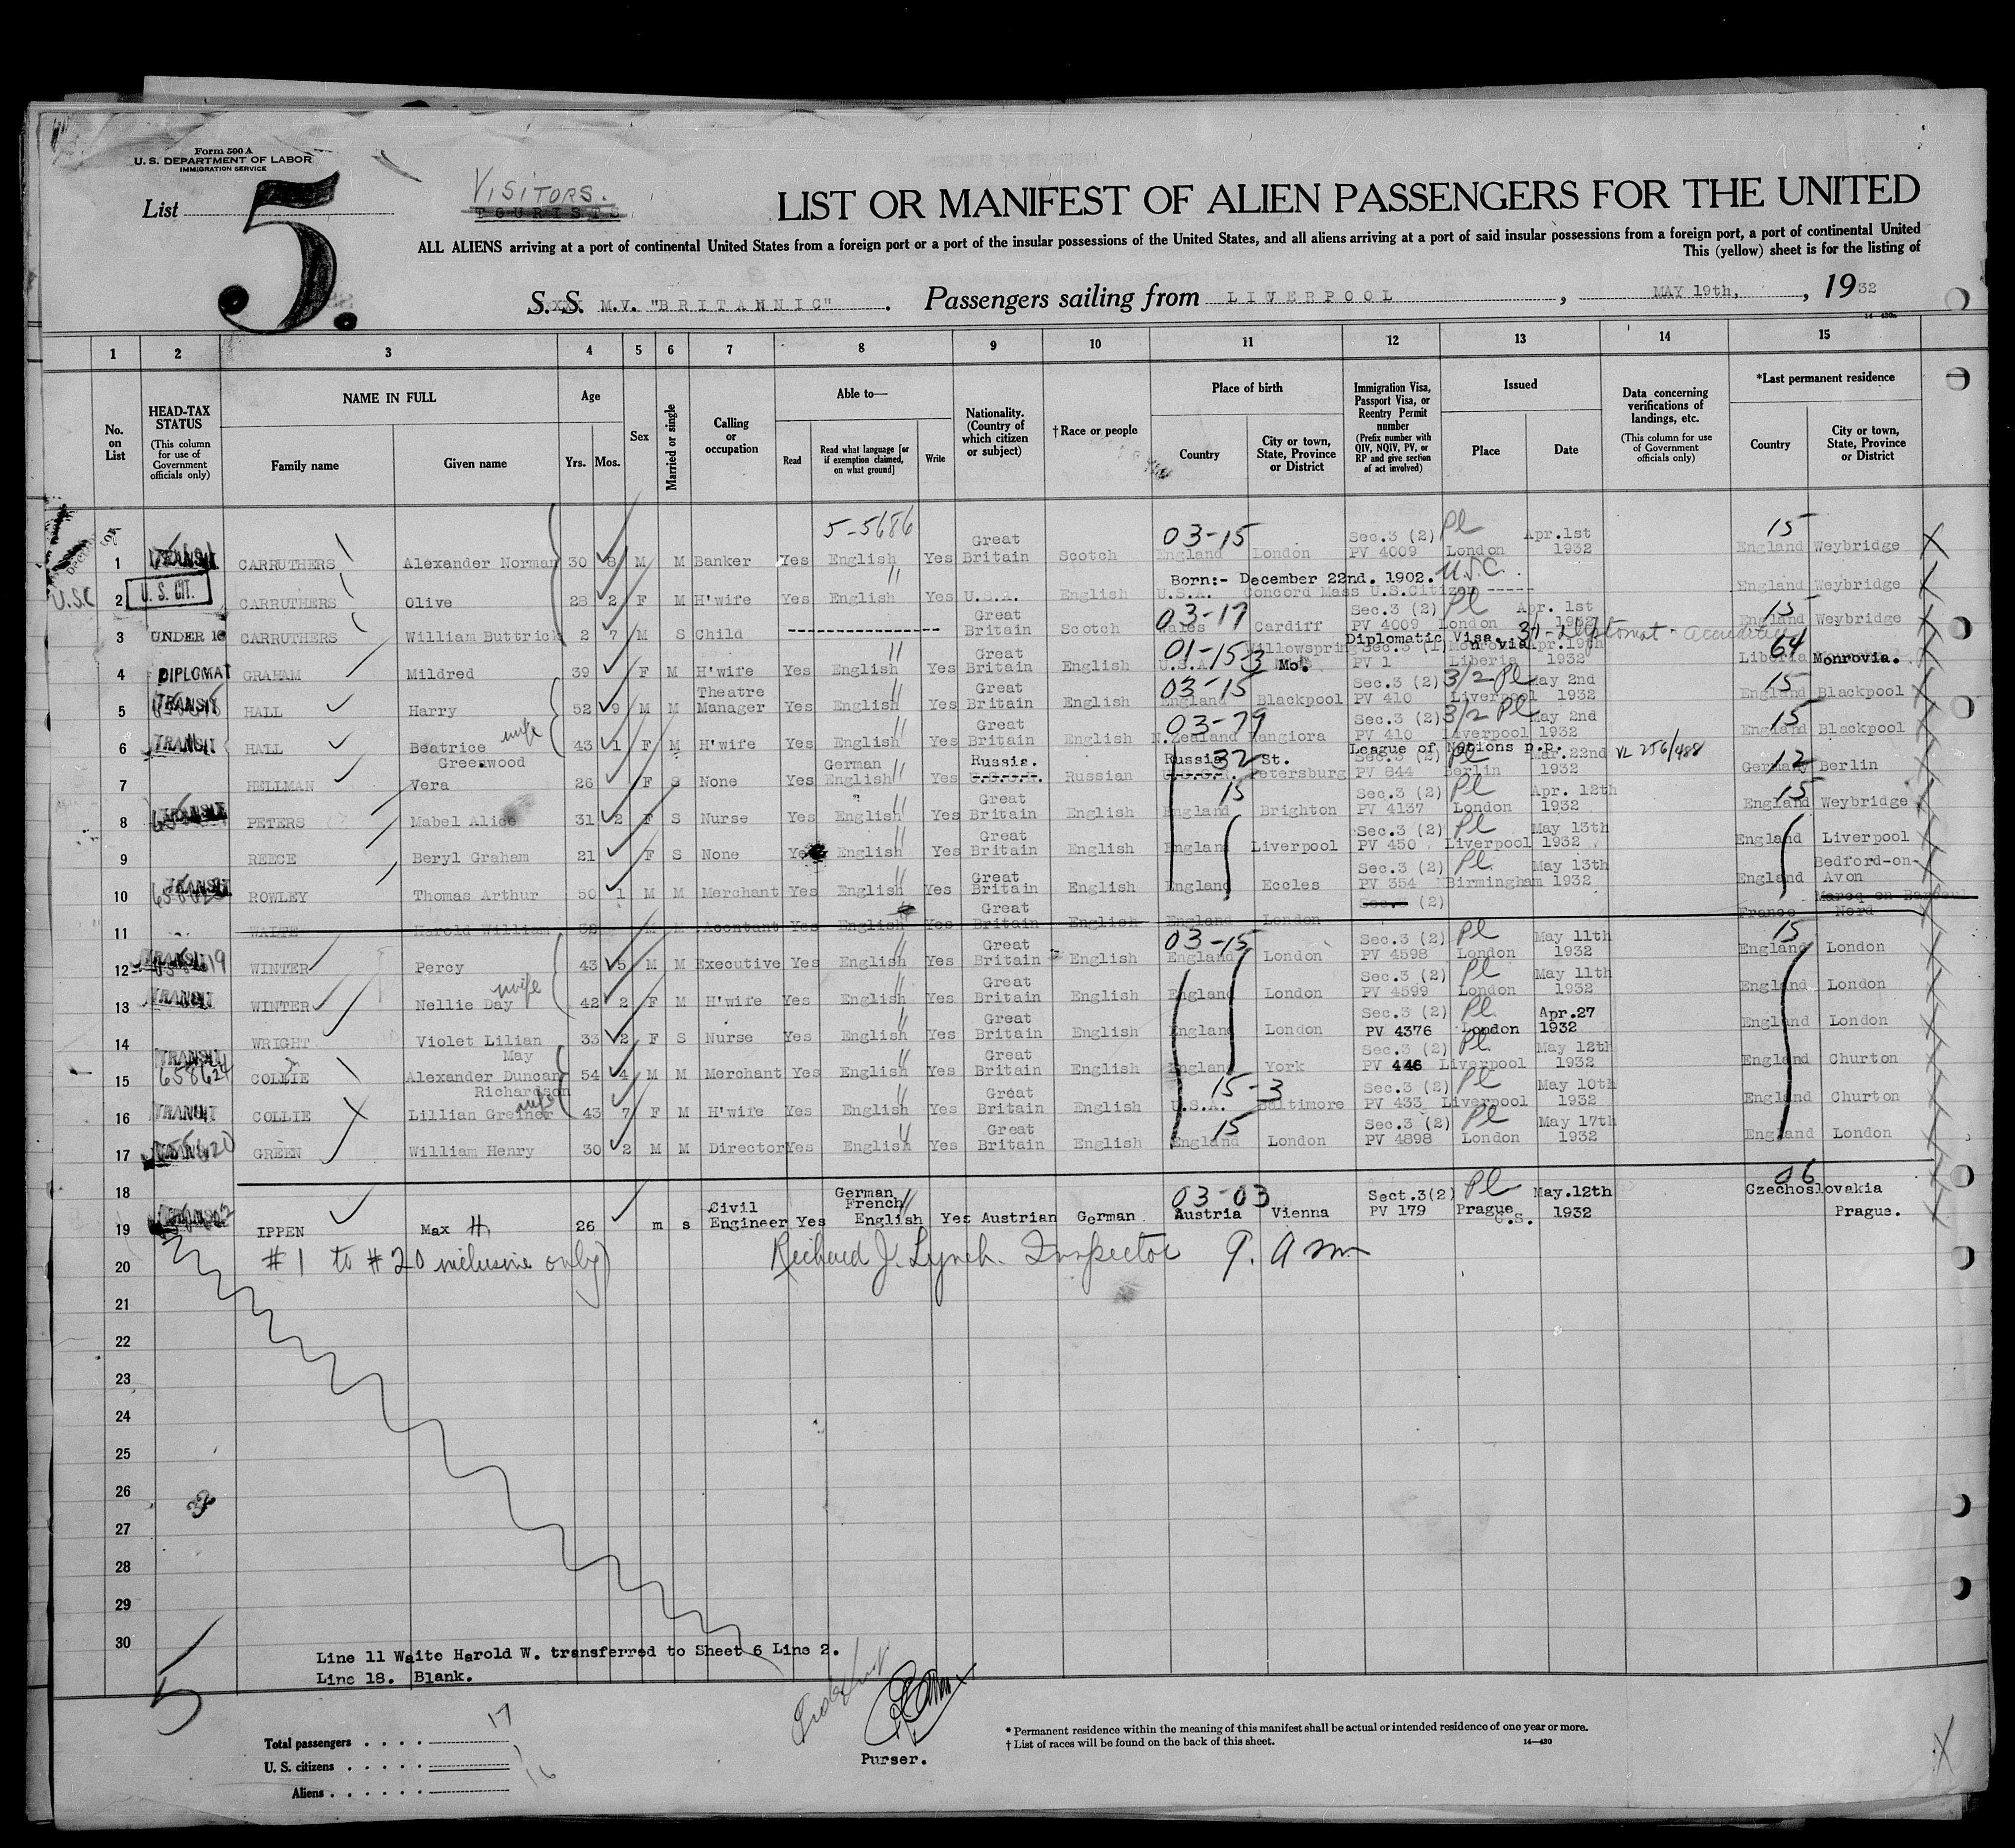 Form 500 A
U. S. DEPARTMENT OF LABOR
IMMIGRATION SERVICE
List 5.
VISITORS.
TOURISTS
LIST OR MANIFEST OF ALIEN PASSENGERS FOR THE UNITED
ALL ALIENS arriving at a port of continental United States from a foreign port or a port of the insular possessions of the United States, and all aliens arriving at a port of said insular possessions from a foreign port, a port of continental United
This (yellow) sheet is for the listing of
S. S. M.V. "BRITANNIC" . Passengers sailing from LIVERPOOL , MAY 19th, , 1932
14—430a
1 2 3 4 5 6 7 8 9 10 11 12 13 14 15
No. on List
HEAD-TAX STATUS (This column for use of Government officials only)
NAME IN FULL Family name Given name
Age Yrs. Mos.
Sex
Married or single
Calling or occupation
Able to— Read Read what language [or if exemption claimed, on what ground] Write
Nationality. (Country of which citizen or subject)
†Race or people
Place of birth Country City or town, State, Province or District
Immigration Visa, Passport Visa, or Reentry Permit number (Prefix number with QIV, NQIV, PV, or RP and give section of act involved)
Issued Place Date
Data concerning verifications of landings, etc. (This column for use of Government officials only)
*Last permanent residence Country City or town, State, Province or District
5-5686 03-15 Pl 15
1 TRANSIT CARRUTHERS Alexander Norman 30 8 M M Banker Yes English Yes Great Britain Scotch England London Sec.3 (2) PV 4009 London Apr.1st 1932 England Weybridge
Born:- December 22nd. 1902. U.S.C.
U.S.C 2 U. S. CIT. CARRUTHERS Olive 28 2 F M H'wife Yes English Yes U.S.A. English U.S.A. Concord Mass U.S.Citizen ----- England Weybridge
3 UNDER 16 CARRUTHERS William Buttrick 2 7 M S Child ---------------- Great Britain Scotch 03-17 Wales Cardiff Sec.3 (2) PV 4009 Pl London Apr. 1st 1932 15 England Weybridge
Diplomatic Visa. 31 - Diplomat -
4 DIPLOMAT GRAHAM Mildred 39 F M H'wife Yes English Yes Great Britain English 01-15 3 U.S.A. Willowspring Mo. Sec.3 (1) PV 1 Monrovia Liberia Apr.19th 1932 64 Liberia Monrovia.
5 TRANSIT HALL Harry 52 9 M M Theatre Manager Yes English Yes Great Britain English 03-15 England Blackpool Sec.3 (2) PV 410 3/2 Pl Liverpool May 2nd 1932 15 England Blackpool
6 TRANSIT HALL Beatrice Greenwood wife 43 1 F M H'wife Yes English Yes Great Britain English 03-79 N.Zealand Rangiora Sec.3 (2) PV 410 3/2 Pl Liverpool May 2nd 1932 15 England Blackpool
League of Nations p.p.
7 HELLMAN Vera 26 F S None Yes German English Yes Russia. U.S.S.R. Russian Russia 32 U.S.S.R. St. Petersburg Sec.3 (2) PV 844 Pl Berlin Mar.22nd 1932 VL 256/488 12 Germany Berlin
8 PETERS Mabel Alice 31 2 F S Nurse Yes English Yes Great Britain English 15 England Brighton Sec.3 (2) PV 4137 Pl London Apr. 12th 1932 15 England Weybridge
9 REECE Beryl Graham 21 F S None Yes English Yes Great Britain English England Liverpool Sec.3 (2) PV 450 Pl Liverpool May 13th 1932 England Liverpool
10 TRANSIT ROWLEY Thomas Arthur 50 1 M M Merchant Yes English Yes Great Britain English England Eccles Sec.3 (2) PV 354 Pl. Birmingham May 13th 1932 England Bedford-on-Avon
11 WAITE Harold William 32 M M Acontant Yes English Yes Great Britain English England London Sec.3 (2) France Marcq en Baroeul Nord
12 TRANSIT WINTER Percy 43 5 M M Executive Yes English Yes Great Britain English 03-15 England London Sec.3 (2) PV 4598 Pl London May 11th 1932 15 England London
13 TRANSIT WINTER Nellie Day wife 42 2 F M H'wife Yes English Yes Great Britain English England London Sec.3 (2) PV 4599 Pl London May 11th 1932 England London
14 WRIGHT Violet Lilian May 33 2 F S Nurse Yes English Yes Great Britain English England London Sec.3 (2) PV 4376 Pl. London Apr.27 1932 England London
15 TRANSIT 658624 COLLIE Alexander Duncan 54 4 M M Merchant Yes English Yes Great Britain English England York Sec.3 (2) PV 446 Pl. Liverpool May 12th 1932 England Churton
16 TRANSIT COLLIE Lillian Greiner Richardson wife 43 7 F M H'wife Yes English Yes Great Britain English 15-3 U.S.A. Baltimore Sec.3 (2) PV 433 Pl Liverpool May 10th 1932 England Churton
17 GREEN William Henry 30 2 M M Director Yes English Yes Great Britain English 15 England London Sec.3 (2) PV 4898 Pl London May 17th 1932 England London
18
19 IPPEN Max H. 26 m s Civil Engineer Yes German French English Yes Austrian German 03-03 Austria Vienna Sect.3(2) PV 179 Pl Prague C.S. May.12th 1932 06 Czechoslovakia Prague.
20 #1 to #20 inclusive only) Richard J. Lynch. Inspector
21
22
23
24
25
26
27
28
29
30
Line 11 Waite Harold W. transferred to Sheet 6 Line 2.
Line 18. Blank.
5
Total passengers . . . . 17
U. S. citizens . . . . . 1
Aliens . . . . . . 16
Purser.
* Permanent residence within the meaning of this manifest shall be actual or intended residence of one year or more.
† List of races will be found on the back of this sheet.
14—430